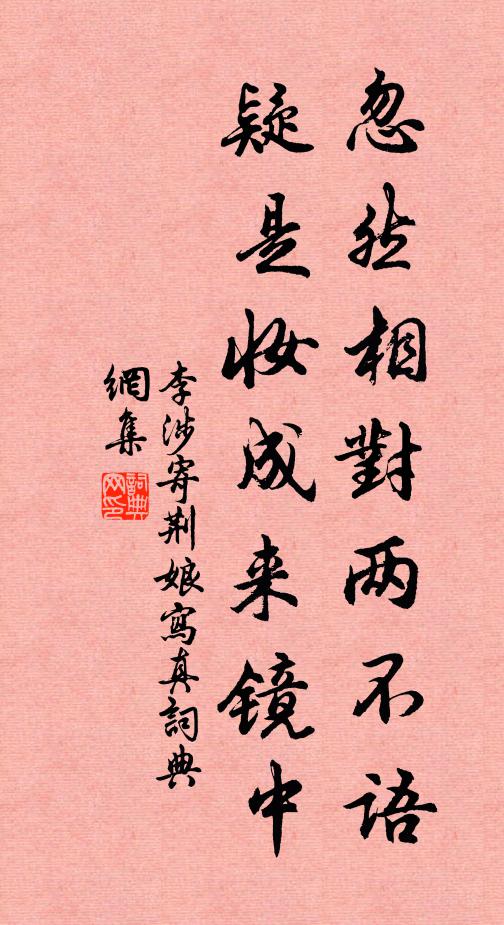 忽然相對两不语
疑是妆成来镜中
李涉寄荆娘寫真詞典
網集
詞典网印